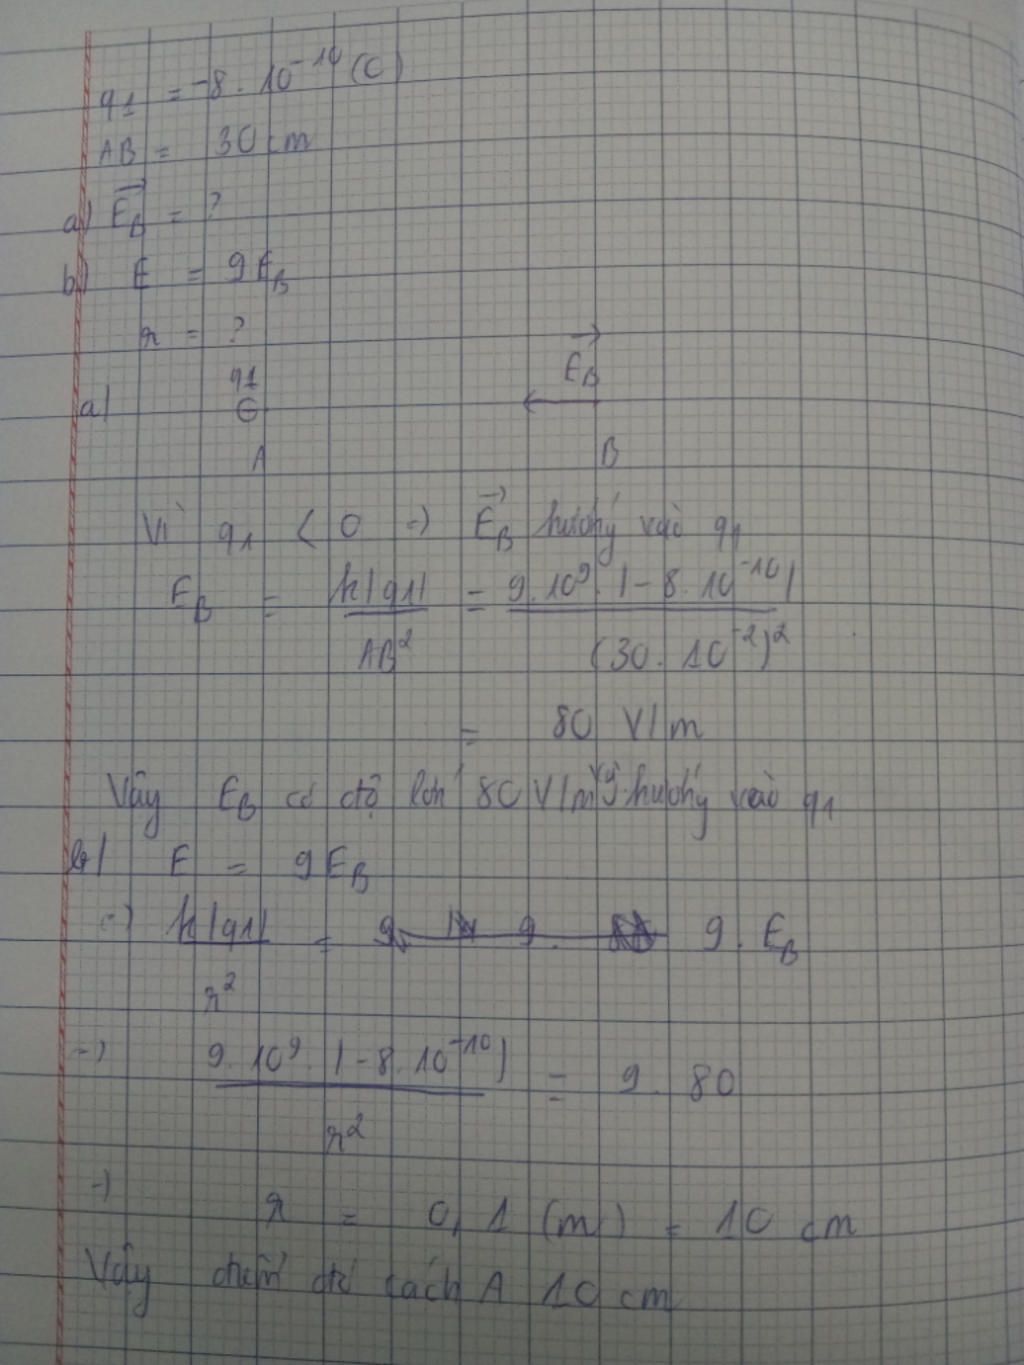 q1 = -8. 10⁻¹⁰ (C)
AB = 30 cm
a) E⃗_B = ?
b) E = 9E_B
r = ?
a) q1
⊖
E⃗_B
A B
Vì q1 < 0 ⇒ E⃗_B hướng vào q1
E_B = k|q1| / AB² = 9. 10⁹. |-8. 10⁻¹⁰| / (30. 10⁻²)²
= 80 V/m
Vậy E_B có độ lớn 80 V/m và hướng vào q1
b) E = 9E_B
⇒ k|q1| / r² = 9. E_B
⇒ 9. 10⁹. |-8. 10⁻¹⁰| / r² = 9. 80
⇒ r = 0,1 (m) = 10 cm
Vậy điểm đó cách A 10 cm